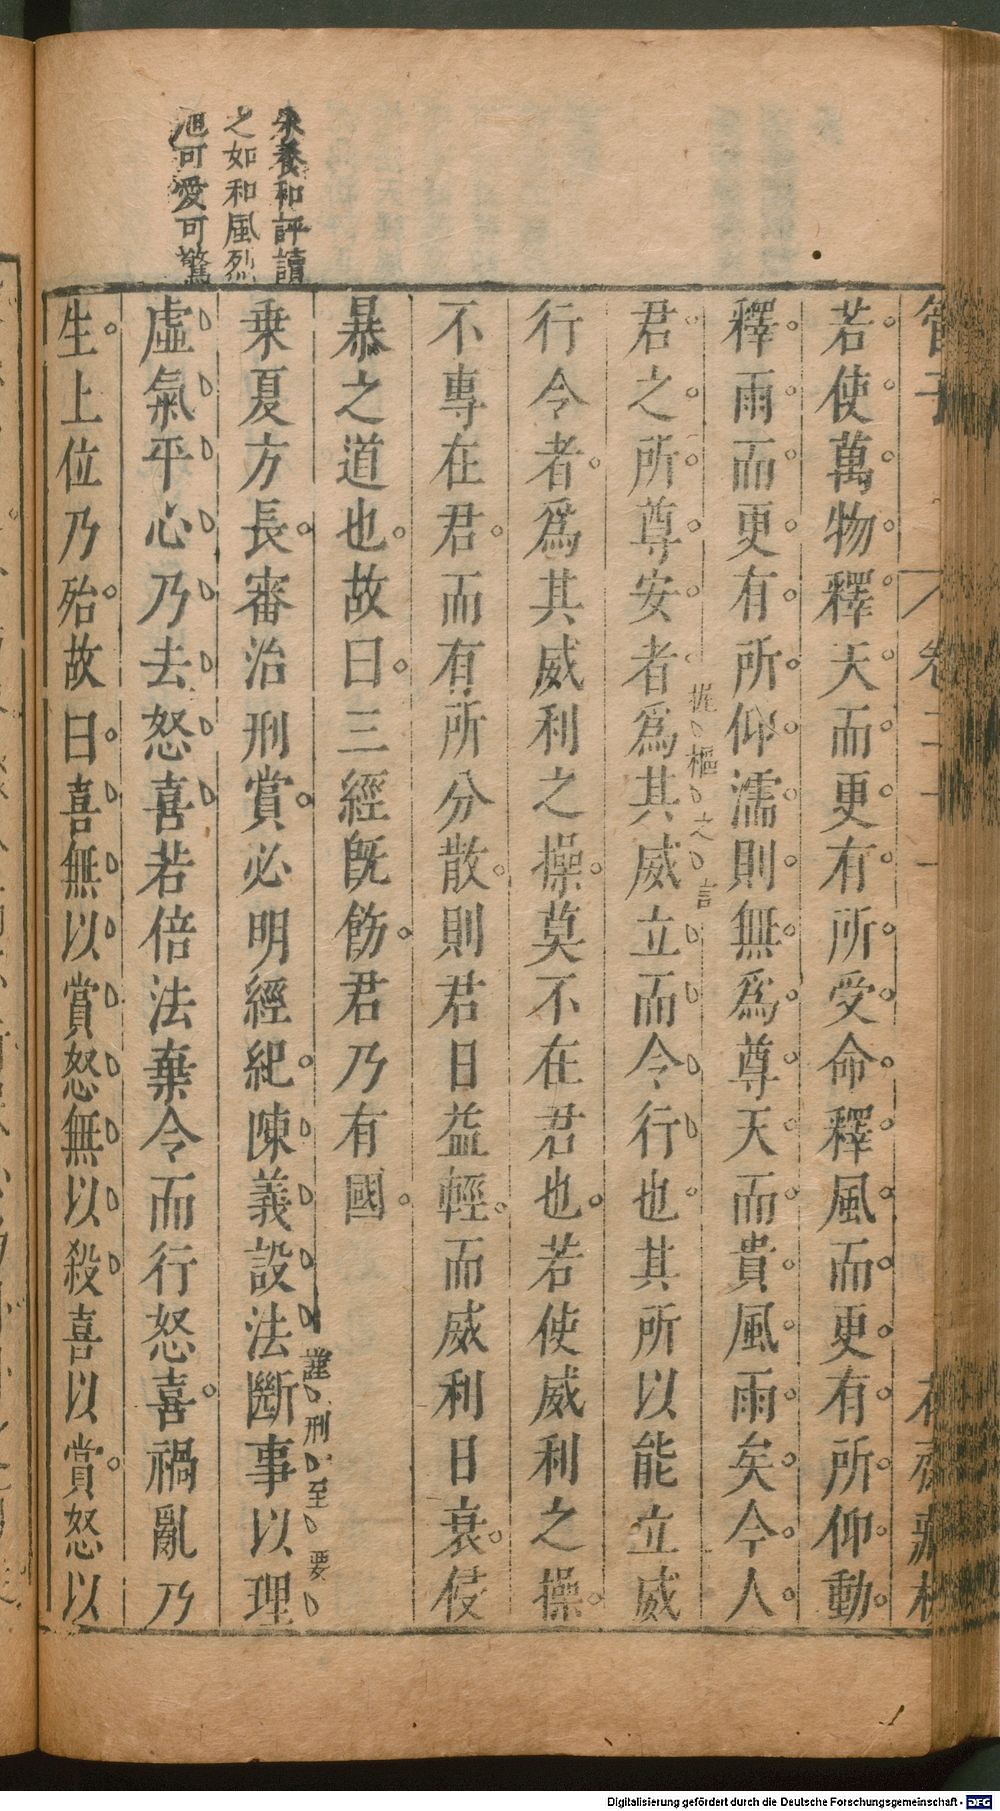 管子
卷二十一
若使萬物釋天而更有所受命釋風而更有所仰動
釋雨而更有所仰濡則無為尊天而貴風雨矣今人
君之所尊安者為其威立而令行也其所以能立威
扼樞之言
行令者為其威利之操莫不在君也若使威利之操
不專在君而有所分散則君日益輕而威利日衰侵
暴之道也故曰三經旣飭君乃有國
乗夏方長審治刑賞必明經紀陳義設法斷事以理
謹刑至要
虛氣平心乃去怒喜若倍法棄令而行怒喜禍亂乃
生上位乃殆故曰喜無以賞怒無以殺喜以賞怒以
朱養和評讀
之如和風烈
旭可愛可驚
Digitalisierung gefördert durch die Deutsche Forschungsgemeinschaft - DFG